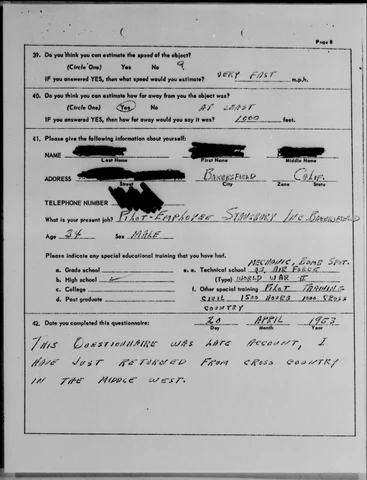 Page 8
39. Do you think you can estimate the speed of the object?
(Circle One) Yes No
IF you answered YES, then what speed would you estimate? VERY FAST m.p.h.
40. Do you think you can estimate how far away from you the object was?
(Circle One) Yes No AT LEAST
IF you answered YES, then how far away would you say it was? 1000 feet.
41. Please give the following information about yourself:
NAME
Last Name First Name Middle Name
ADDRESS BAKERSFIELD CALIF.
Street City Zone State
TELEPHONE NUMBER
What is your present job? PILOT-EMPLOYEE STANSBURY INC. BAKERSFIELD
Age 34 Sex MALE
Please indicate any special educational training that you have had.
MECHANIC, BOMB SPT.
a. Grade school e. Technical school AIR FORCE
b. High school ✓ (Type) WORLD WAR II
c. College f. Other special training PILOT TRAINING
d. Post graduate CIVIL 1500 HOURS 1000 CROSS
COUNTRY
42. Date you completed this questionnaire: 20 APRIL 1953
Day Month Year
THIS QUESTIONNAIRE WAS LATE ACCOUNT, I
HAVE JUST RETURNED FROM CROSS COUNTRY
IN THE MIDDLE WEST.